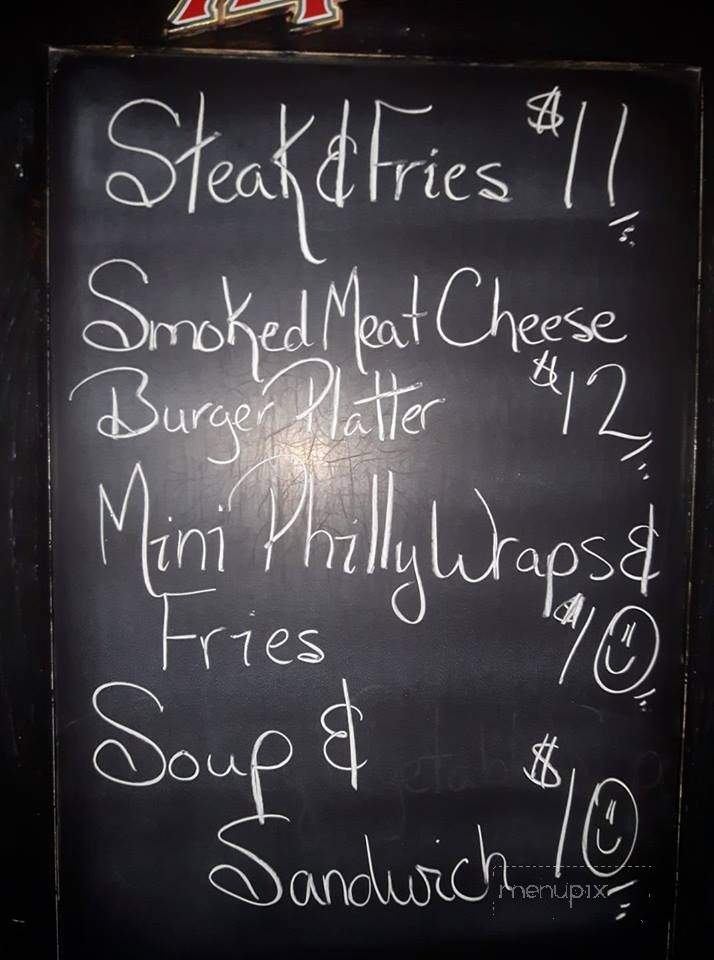 Steak & Fries $11
Smoked Meat Cheese
Burger Platter $12
Mini Philly Wraps &
Fries $10
Soup &
Sandwich $10
menupix